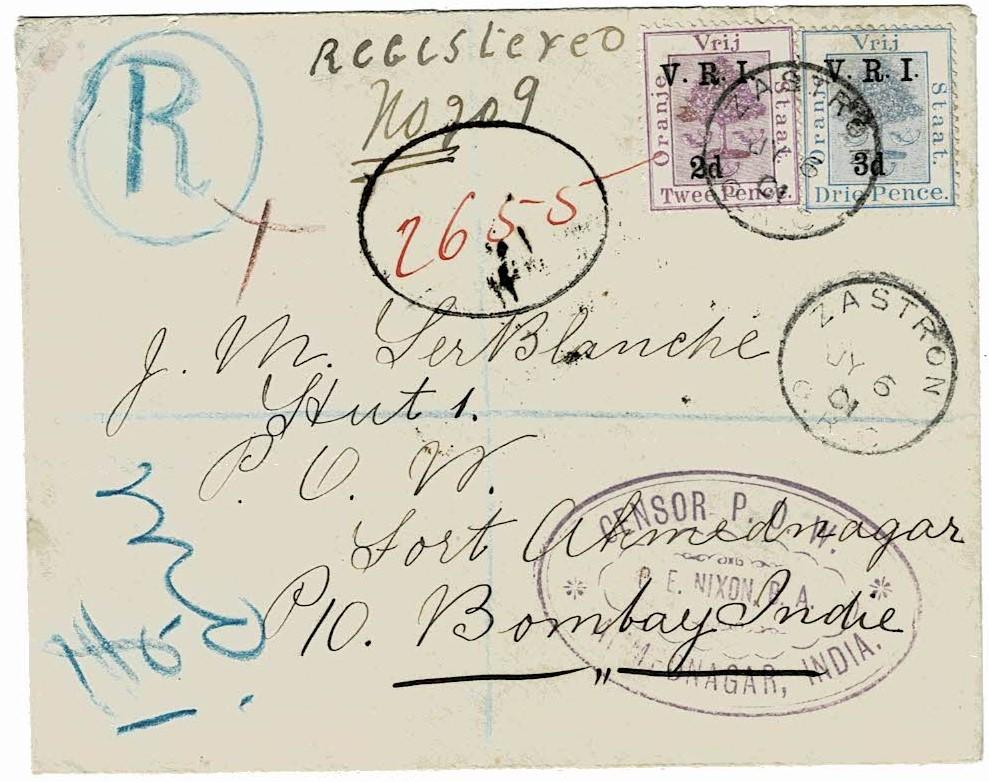 R
Registered
No 209
2655
Vrij
V. R. I.
Oranje
Staat.
2d
Twee Pence.
Vrij
V. R. I.
Oranje
Staat.
3d
Drie Pence.
ZASTRON
6
01
ZASTRON
6
01
J. M. Ler Blanche
Hut 1.
P. O. W.
Fort Ahmednagar
P/O. Bombay Indie
CENSOR P. O. W.
E. NIXON, R. A.
NAGAR, INDIA.